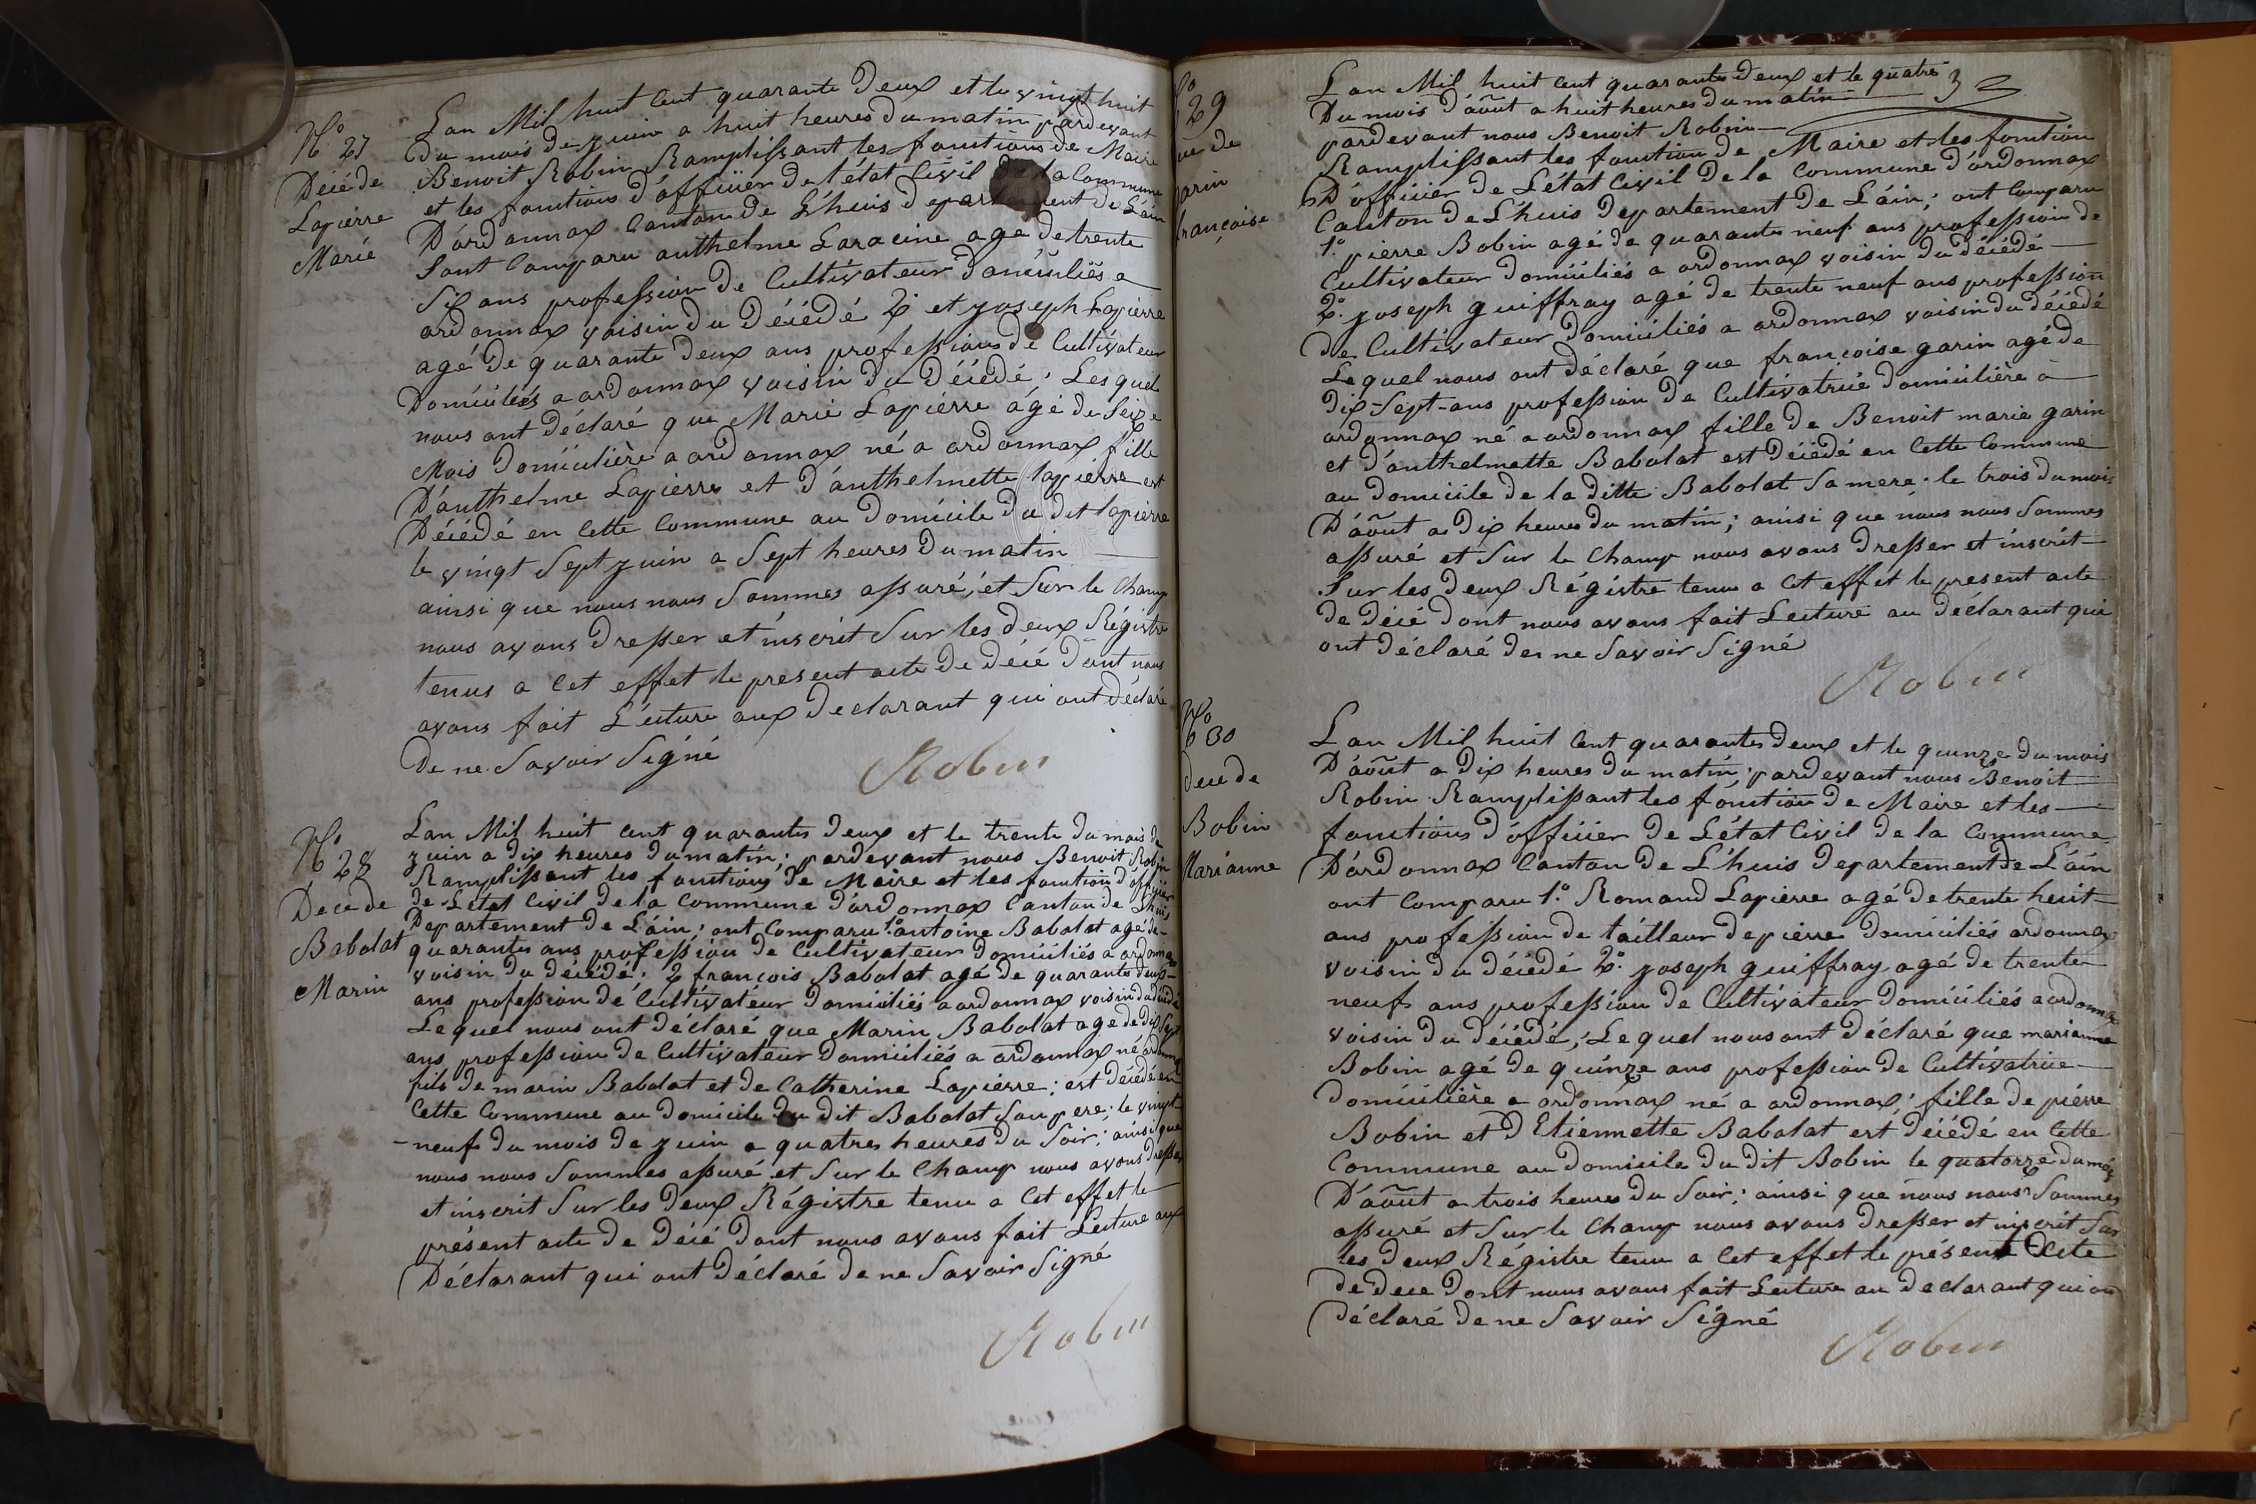 No 27
Décé de
Lapierre
Marié
Lan Mil huit Cent quarante Deux et le vingt huit
Du mois de juin a huit heures du matin pardevant
Benoit Robin Ramplissant les fonctions de Maire
et les fonctions d'officier de l'état Civil de la Commune
D'ordonnax Canton de L'huis departement de L'ain
Sont Comparu anthelme Laracine agé de trente
Six ans profession de Cultivateur Domiciliés a
ordonnax voisin du Décédé 2° et joseph Lapierre
agé de quarante deux ans profession de Cultivateur
Domiciliés a ordonnax voisin du Décédé; Lesquel
nous ont déclaré que Marie Lapierre agé de Seize
Mois Domicilière a ordonnax né a ordonnax fille
D'anthelme Lapierre et d'anthelmette lapierre est
Décédé en Cette Commune au Domicile du dit lapierre
le vingt Sept juin a Sept heures du matin
ainsi que nous nous Sommes assuré, et Sur le Champ
nous avons Dresser et inscrit Sur les deux Régistre
tenus a Cet effet le present acte de décé Dont nous
avons fait Lecture aux Declarant qui ont déclaré
De ne Savoir Signé
Robin
No 28
Decede
Babolat
Marin
Lan Mil huit Cent quarante deux et le trente du mois de
juin a dix heures du matin; pardevant nous Benoit Robin
Ramplissant les fonctions de Maire et les fonction d'officier
de L'état Civil de la Commune D'ordonnax Canton de Lhuis
Departement de L'ain; ont Comparu 1° antoine Babolat agé de
quarante ans profession de Cultivateur Domiciliés a ordonnax
voisin du décédé; 2 françois Babolat agé de quarante deux
ans profession de Cultivateur Domiciliés a ordonnax voisin du décédé
Lequel nous ont déclaré que Marin Babolat age de dix Sept
ans profession de Cultivateur Domiciliés a ordonnax né ordonnax
fils de marin Babolat et de Catherine Lapierre; est décédé en
Cette Commune au Domicile du dit Babolat Son pere; le vingt
neuf du mois de juin a quatres heures du Soir; ainsi que
nous nous Sommes assuré et Sur le Champ nous avons Dresser
et inscrit Sur les Deux Régistre tenu a Cet effet le
présent acte de Décé Dont nous avons fait Lecture aux
Déclarant qui ont Déclaré de ne Savoir Signé
Robin
No
29
cé de
garin
françoise
Lan Mil huit Cent quarante Deux et le quatre
Du mois d'août a huit heures du matin
pardevant nous Benoit Robin
Ramplissant les fonction de Maire et les fonction
D'officier de L'état Civil de la Commune d'ordonnax
Canton de L'huis Departement de L'ain; ont Comparu
1° pierre Bobin agé de quarante neuf ans profession de
Cultivateur domiciliés a ordonnax voisin du décédé
2° joseph guiffray agé de trente neuf ans profession
de Cultivateur Domiciliés a ordonnax voisin du décédé
Lequel nous ont déclaré que françoise garin agé de
Dix-Sept-ans profession de Cultivatrice domicilière a
ordonnax né a ordonnax fille de Benoit marie garin
et d'anthelmette Babolat est décédé en Cette Commune
au domicile de la ditte Babolat Sa mere; le trois du mois
D'août a Dix heures du matin; ainsi que nous nous Sommes
assuré et Sur le Champ nous avons Dresser et inscrit
Sur les deux Régistre tenu a Cet effet le present acte
de décé dont nous avons fait Lecture au déclarant qui
ont déclaré de ne Savoir Signé
Robin
No
30
Decede
Bobin
Marianne
Lan Mil huit Cent quarante deux et le quinze du mois
D'août a Dix heures du matin; pardevant nous Benoit
Robin Ramplissant les fonction de Maire et les
fonctions d'officier de L'état Civil de la Commune
D'ordonnax Canton de L'huis departement de L'ain
ont Comparu 1° Romand Lapierre agé de trente huit
ans profession de tailleur de pierre Domiciliés ordonnax
voisin du décédé 2° joseph guiffray agé de trente
neuf ans profession de Cultivateur Domiciliés a ordonnax
voisin du décédé; Lequel nous ont déclaré que marianne
Bobin agé de quinze ans profession de Cultivatrice
Domicilière a ordonnax né a ordonnax; fille de pierre
Bobin et d Etiennette Babolat est décédé en Cette
Commune au Domicile du dit Bobin le quatorze du mois
D'août a trois heures du Soir; ainsi que nous nous Sommes
assuré et Sur le Champ nous avons dresser et inscrit Sur
les Deux Régistre tenu a Cet effet le présent acte
de Dece Dont nous avons fait Lecture au Declarant qui ont
Déclaré de ne Savoir Signé
Robin